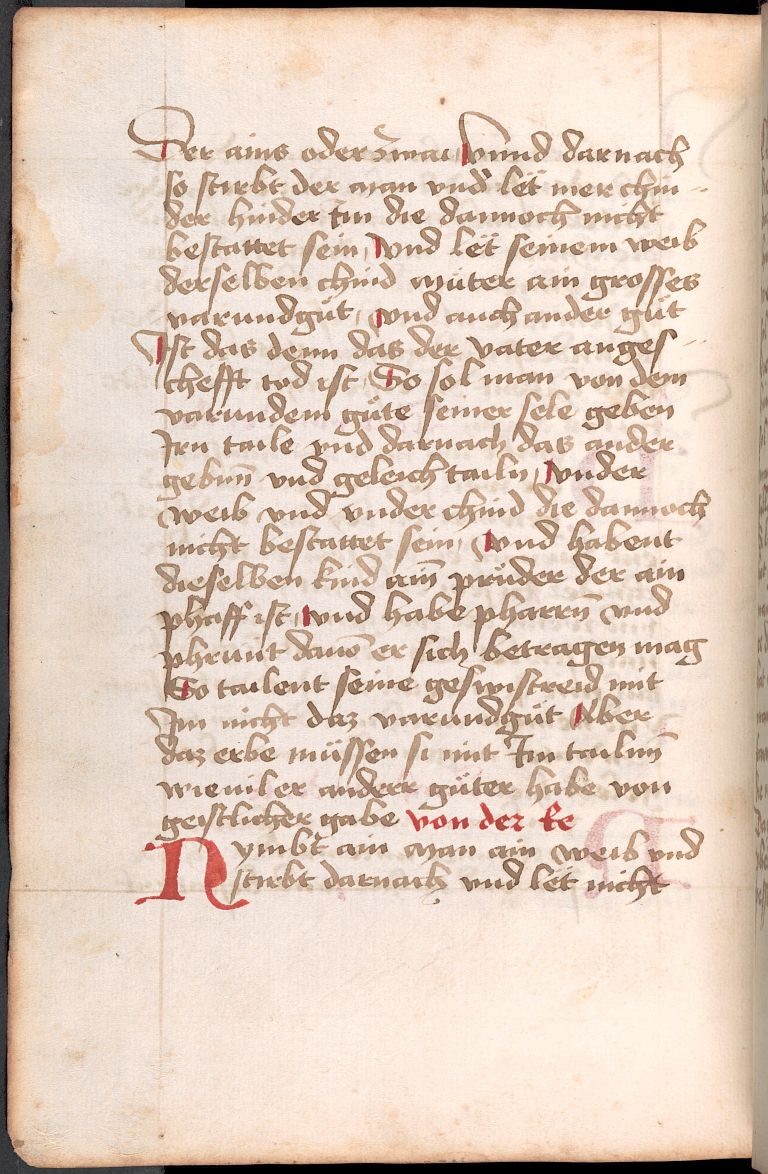 Der ains oder zwai vnnd darnach
so stirbt der man vnd let mer chin
der hinder Im die dannoch nicht
bestattet sein vnd let seinem weib
derselben chind müter ain grosses
varundgüt vnd auch ander güt
Ist das denn das der vater anges
chefft tod ist So sol man von dem
varundem güte seiner sele geben
Irn taile vnd darnach das ander
gebñ vnd geleich tailn vnder
weib vnd vnder chind die dannoch
nicht bestattet sein vnd habent
dieselben kind ainē prüder der ain
phaff ist vnd habe pharrñ vnd
phrünt dauō er sich betragen mag
So tailent seine geswistreid mit
Im nicht daz varundgüt Aber
daz erbe müssen si mit Im tailnn
wieuil er anderr güter habe von
geistlicher gabe von der Ee
Nymbt ain man ain weib vnd
stirbt darnach vnd let nicht